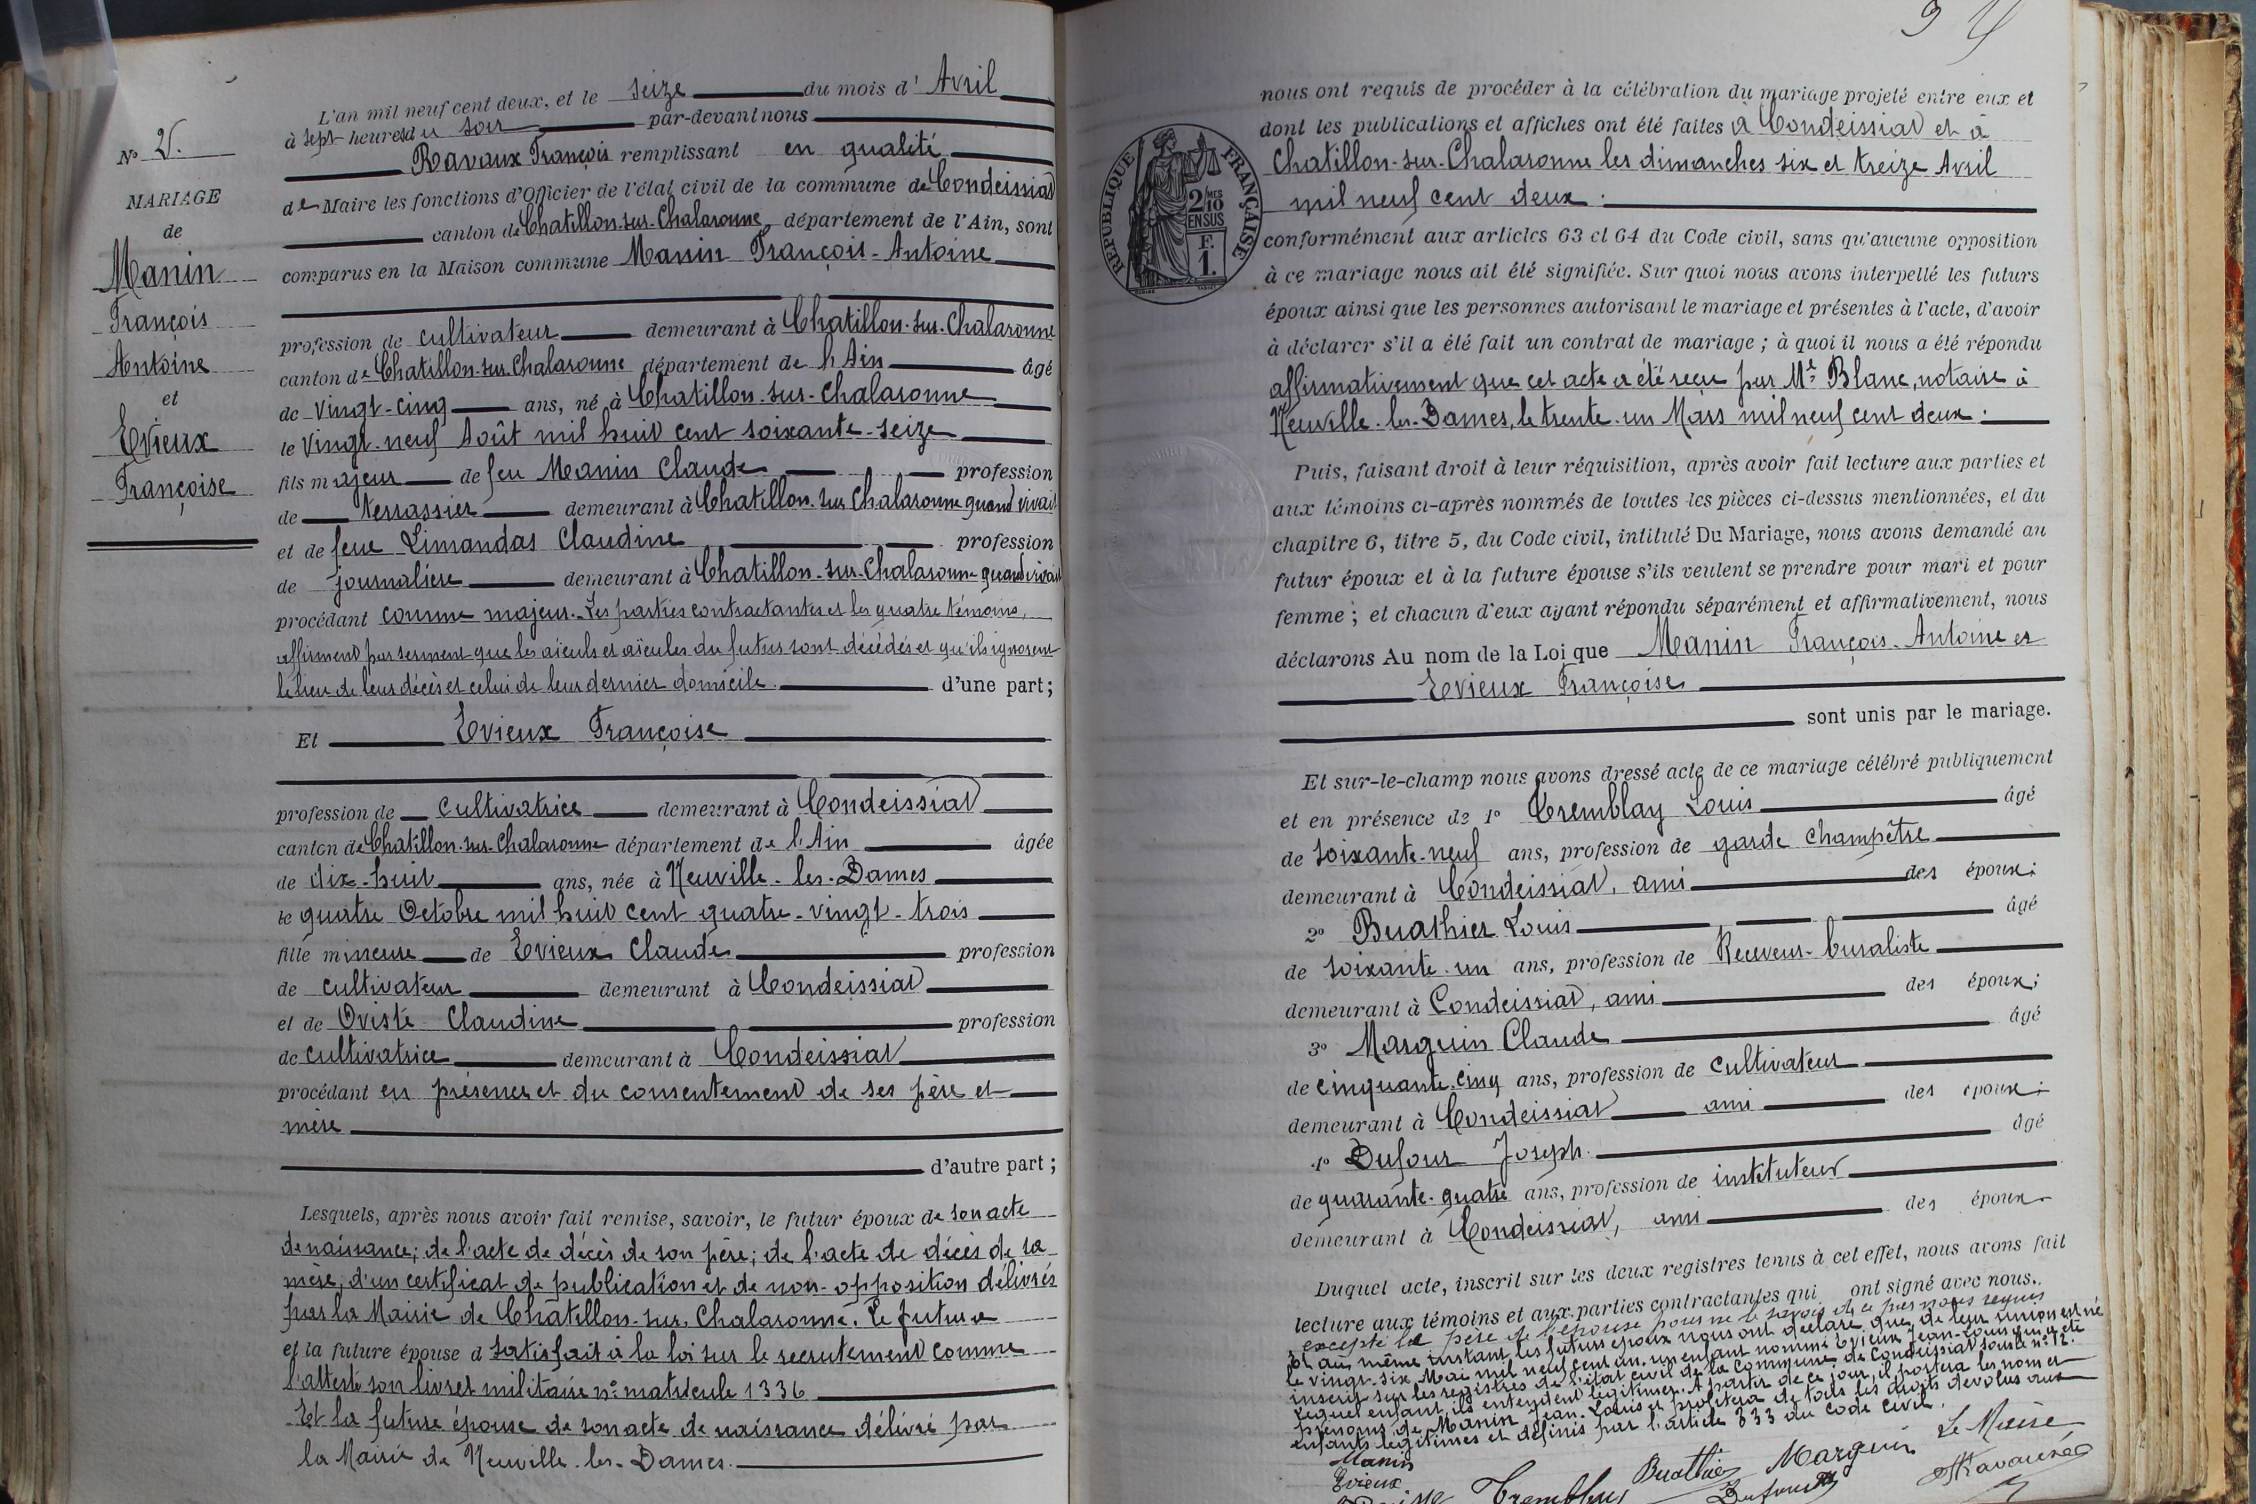 N° 2.
MARIAGE
de
Manin
François
Antoine
et
Evieux
Françoise
L'an mil neuf cent deux, et le seize du mois d' Avril
à sept heures du soir par-devant nous
Ravaux François remplissant en qualité
de Maire les fonctions d'Officier de l'état civil de la commune de Condeissiat
canton de Chatillon-sur-Chalaronne département de l'Ain, sont
comparus en la Maison commune Manin François-Antoine
profession de cultivateur demeurant à Chatillon-sur-Chalaronne
canton de Chatillon-sur-Chalaronne département de l'Ain âgé
de vingt-cinq ans, né à Chatillon-sur-Chalaronne
le vingt-neuf Août mil huit cent soixante-seize
fils majeur de feu Manin Claude profession
de terrassier demeurant à Chatillon-sur-Chalaronne quand vivait
et de feue Limandas Claudine profession
de journalière demeurant à Chatillon-sur-Chalaronne quand vivait
procédant comme majeur. Les parties contractantes et les quatre témoins,
affirment par serment que les aïeuls et aïeules du futur sont décédés et qu'ils ignorent
le lieu de leur décès et celui de leur dernier domicile. d'une part;
Et Evieux Françoise
profession de cultivatrice demeurant à Condeissiat
canton de Chatillon-sur-Chalaronne département de l'Ain âgée
de dix-huit ans, née à Neuville-les-Dames
le quatre Octobre mil huit cent quatre-vingt-trois
fille mineure de Evieux Claude profession
de cultivateur demeurant à Condeissiat
et de Oviste Claudine profession
de cultivatrice demeurant à Condeissiat
procédant en présence et du consentement de ses père et
mère
d'autre part;
Lesquels, après nous avoir fait remise, savoir, le futur époux de son acte
de naissance; de l'acte de décès de son père; de l'acte de décès de sa
mère, d'un certificat de publication et de non-opposition délivrés
par la Mairie de Chatillon-sur-Chalaronne. Le futur a
et la future épouse d satisfait à la loi sur le recrutement comme
l'atteste son livret militaire n° matricule 1336
Et la future épouse de son acte de naissance délivré par
la Mairie de Neuville-les-Dames.
nous ont requis de procéder à la célébration du mariage projeté entre eux et
dont les publications et affiches ont été faites à Condeissiat et à
Chatillon-sur-Chalaronne les dimanches six et treize Avril
mil neuf cent deux:
RÉPUBLIQUE FRANÇAISE
2/10MES
EN SUS
F.
1.
conformément aux articles 63 et 64 du Code civil, sans qu'aucune opposition
à ce mariage nous ait été signifiée. Sur quoi nous avons interpellé les futurs
époux ainsi que les personnes autorisant le mariage et présentes à l'acte, d'avoir
à déclarer s'il a été fait un contrat de mariage; à quoi il nous a été répondu
affirmativement que cet acte a été reçu par Me Blanc, notaire à
Neuville-les-Dames, le trente-un Mars mil neuf cent deux:
Puis, faisant droit à leur réquisition, après avoir fait lecture aux parties et
aux témoins ci-après nommés de toutes les pièces ci-dessus mentionnées, et du
chapitre 6, titre 5, du Code civil, intitulé Du Mariage, nous avons demandé au
futur époux et à la future épouse s'ils veulent se prendre pour mari et pour
femme; et chacun d'eux ayant répondu séparément et affirmativement, nous
déclarons Au nom de la Loi que Manin François-Antoine et
Evieux Françoise
sont unis par le mariage.
Et sur-le-champ nous avons dressé acte de ce mariage célébré publiquement
et en présence de 1° Tremblay Louis âgé
de soixante-neuf ans, profession de garde champêtre
demeurant à Condeissiat, ami des époux;
2° Buathier Louis âgé
de soixante-un ans, profession de Receveur-buraliste
demeurant à Condeissiat, ami des époux;
3° Marguin Claude âgé
de cinquante-cinq ans, profession de cultivateur
demeurant à Condeissiat ami des époux;
4° Dufour Joseph âgé
de quarante-quatre ans, profession de instituteur
demeurant à Condeissiat, ami des époux
Duquel acte, inscrit sur les deux registres tenus à cet effet, nous avons fait
lecture aux témoins et aux parties contractantes qui ont signé avec nous.
excepté le père de l'épouse pour ne le savoir de ce par nous requis
Et au même instant les futurs époux nous ont déclaré que de leur union est né
le vingt-six Mai mil neuf cent un, un enfant nommé Evieux Jean-Louis qui a été
inscrit sur les registres de l'état civil de la commune de Condeissiat sous le n° 12.
Lequel enfant, ils entendent légitimer. A partir de ce jour, il portera les nom et
prénoms de Manin Jean-Louis et profitera de tous les droits dévolus aux
enfants légitimes et définis par l'article 333 du Code Civil.
Manin
Evieux
Tremblay
Buathier
Dufour
Marguin
Le Maire
Ravaux